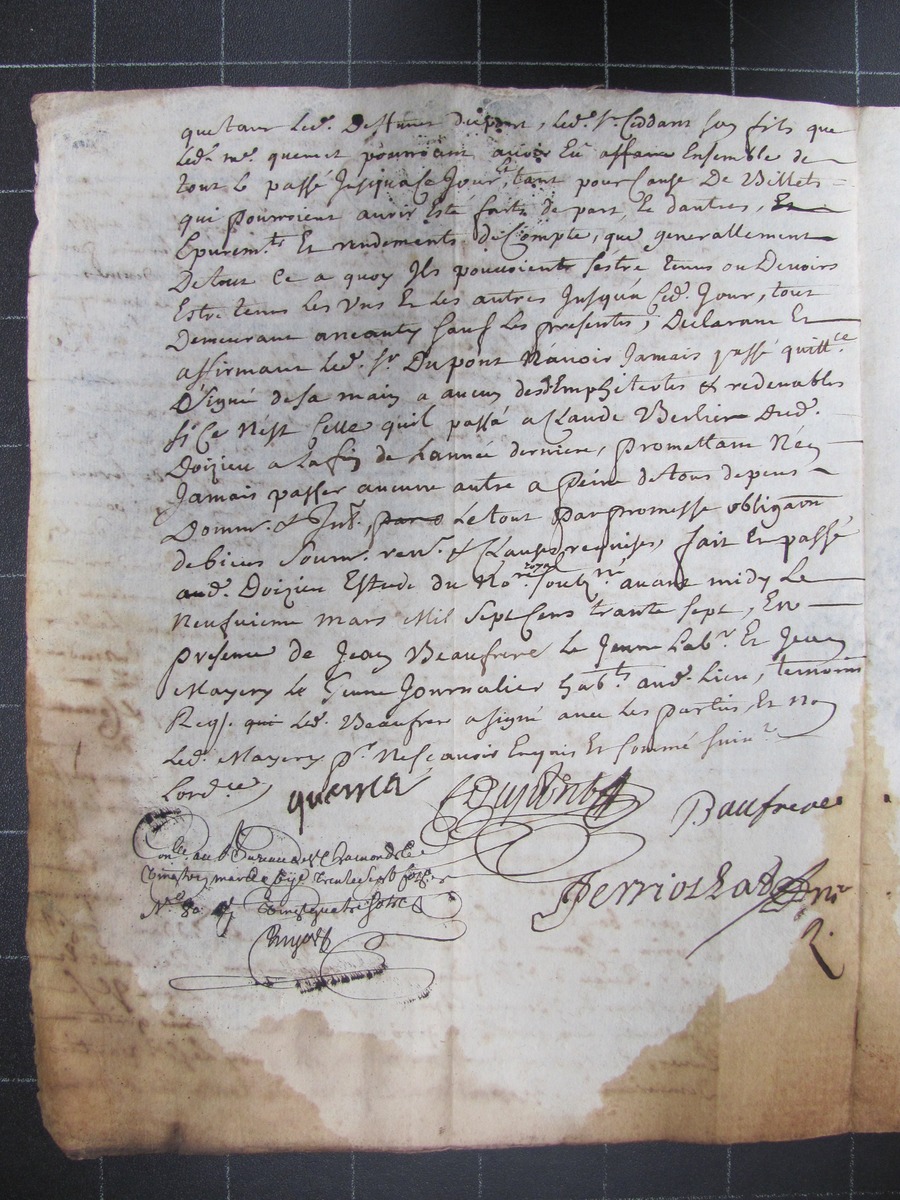 que tant led. Deffunt dupont, led. Sr. Ceddant son fils que
led. me. querret pourroient avoir Eu affaire Ensemble de
tout le passé Jusqua se Jour, tant pour Cause De Billets
qui pourroient avoir Esté faits de part Et dautres,
Epuremts. Et rendements de Compte, que generallement
De tout Ce a quoy Ils pouvoient sestre tenus ou Devoirs
Estre tenus les Uns Et les autres Jusqua Ced. Jour, tout
Demeurant aneanty sauf les presentes, Declarant Et
affirmant led. Sr. Dupont N'avoir Jamais passé quittce.
D'signé de sa main a aucun desd. Emphiteotes & redevables
si Ce Nest Celle quil passé a Claude Berlier Dud.
Doizieu a la fin de Lannée derniere, promettant Nen
Jamais passer aucune autre a peine de tous depens
Domm. & Int. Le tout par promesse obligaon
de biens Soum. ren. & Clauses requises, fait Et passé
aud. Doizieu Estude du Nore. royal soubzné. avant midy Le
Neufvieme mars Mil Sept Cens trante sept, En
presence de Jean Beaufrere Le Jeune Labr. Et Jean
Mayery Le Jeune Journalier habts. aud. Lieu, temoins
Reqs. Led. Beaufrere a signé avec les parties, Et Non
Led. Mayery pr. Ne Scavoir Enquis Et sommé suivt.
Lordce.
querret Dupont Baufrere
Conlle. au Bureau de St Chamond le
vingt mars sept trente sept
No. 80 vingt quatre sols
Perriot